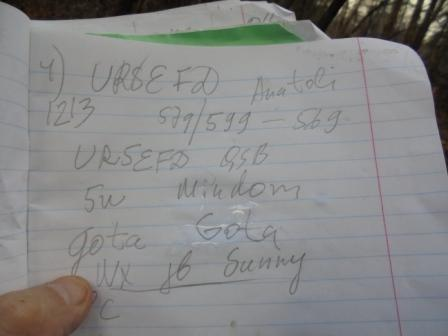 4) UR5EFD Anatoli
1213 579/599 - 569
UR5EFD QSB
5w Mindom
gota Gota
WX jb Sunny
°C